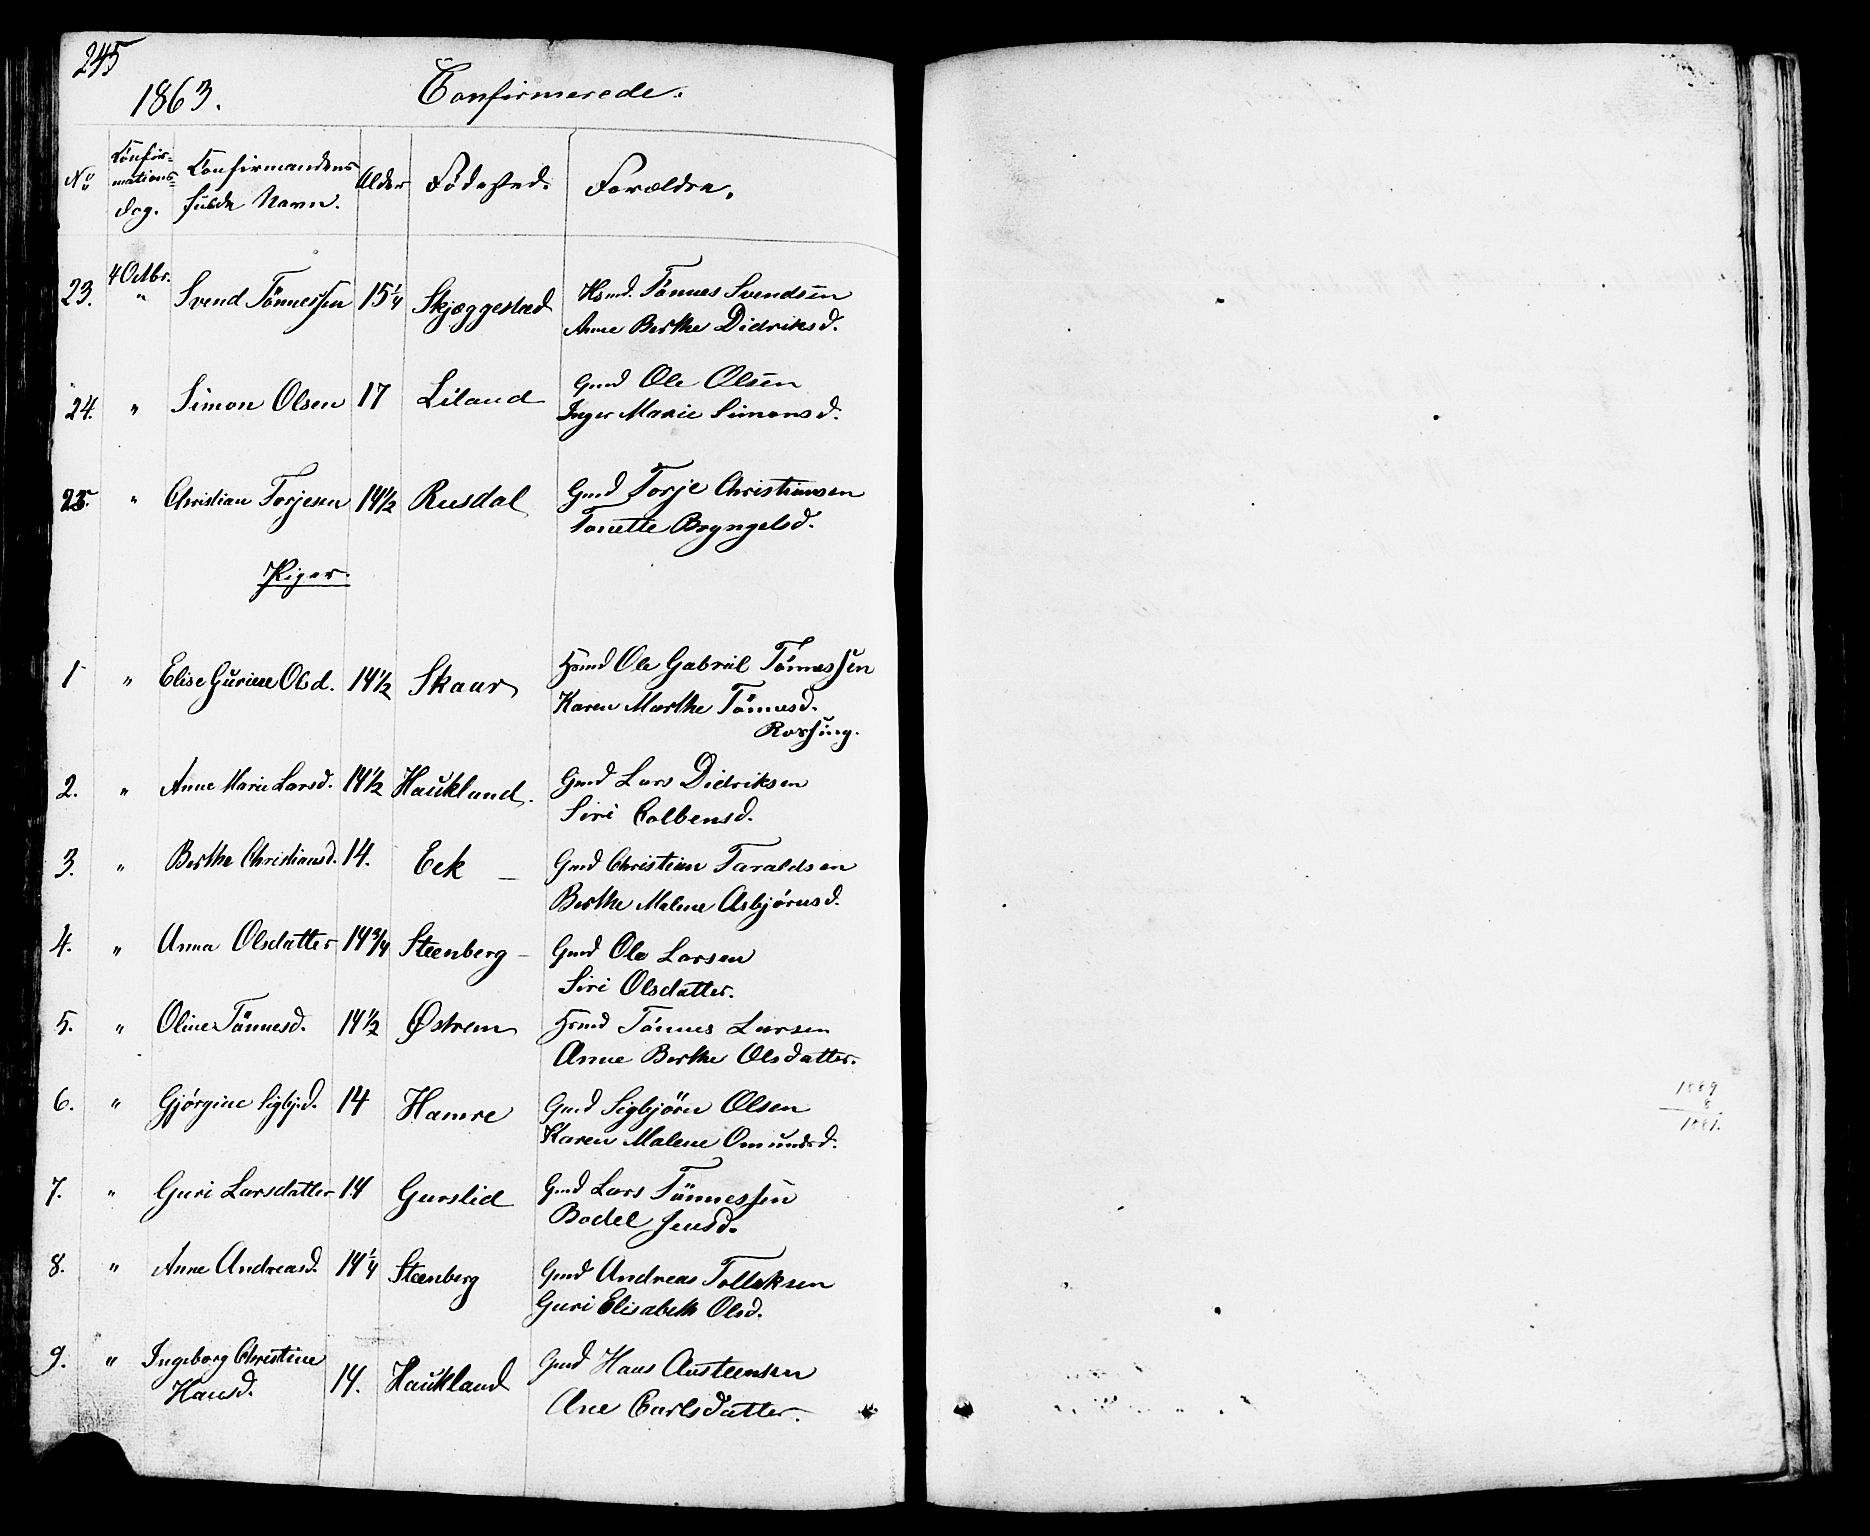 245
1863. Confirmerede.
No Confirmations-dag. Confirmandens fulde Navn. Alder Fødested. Forældre.
23. 4 Octbr. " Svend Tönnessen 15 1/4 Skjæggestad Hsmd. Tönnes Svendsen
Anne Berthe Didriksd.
24. " Simon Olsen 17 Liland Gmd Ole Olsen
Inger Marie Simonsd.
25. " Christian Torjesen 14 1/2 Rusdal Gmd Torje Christiansen
Tonette Bryngelsd.
Piger.
1 " Elise Gurine Olsd. 14 1/2 Skaar Hsmd Ole Gabriel Tönnessen
Karen Marthe Tönnesd.
Rossing.
2. " Anne Marie Larsd. 14 1/2 Haukland. Gmd Lars Didriksen
Siri Colbensd.
3. " Berthe Christiansd. 14. Eek — Gmd Christian Taraldsen
Berthe Malene Asbjørnsd.
4. " Anna Olsdatter 14 3/4 Steenberg — Gmd Ole Larsen
Siri Olsdatter.
5. " Oline Tönnesd. 14 1/2 Østrem Hsmd Tönnes Larsen
Anne Berthe Olsdatter.
6. " Gjörgine Sigbj.d. 14 Hamre Gmd Sigbjörn Olsen
Karen Malene Omundsd.
7. " Guri Larsdatter 14 Gurslid Gmd Lars Tönnessen
Bodel Jensd.
8. " Anne Andreasd. 14 1/4 Steenberg Gmd Andreas Tollaksen
Guri Elisabeth Olsd.
9. " Ingeborg Christine Hansd. 14. Haukland Gmd Hans Austeensen
Ane Carlsdatter.
1889
8
1881.